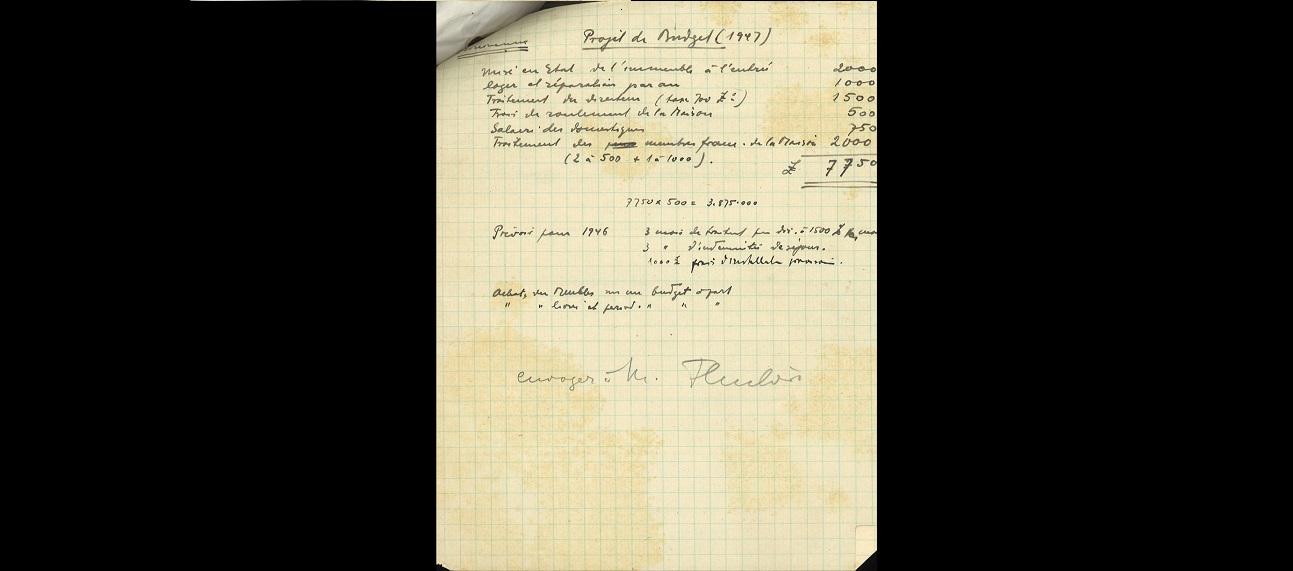 Projet de Budget (1947)
Mise en Etat de l'immeuble à l'entrée 2000
loyer et réparations par an 1000
Traitement du directeur (taxe 700 £ ?) 1500
Frais de roulement de la Maison 500
Salaire des domestiques 750
Traitement des membres franç. de la Maison 2000
(2 à 500 + 1 à 1000).
£ 7750
7750 x 500 = 3.875.000
Prévoir pour 1946 3 mois de par dir. à 1500 £
3 " d'indemnités de séjour.
1000 £ frais
Achat, des Meubles sur un budget à part
" " livres et period. " " "
envoyer à M.